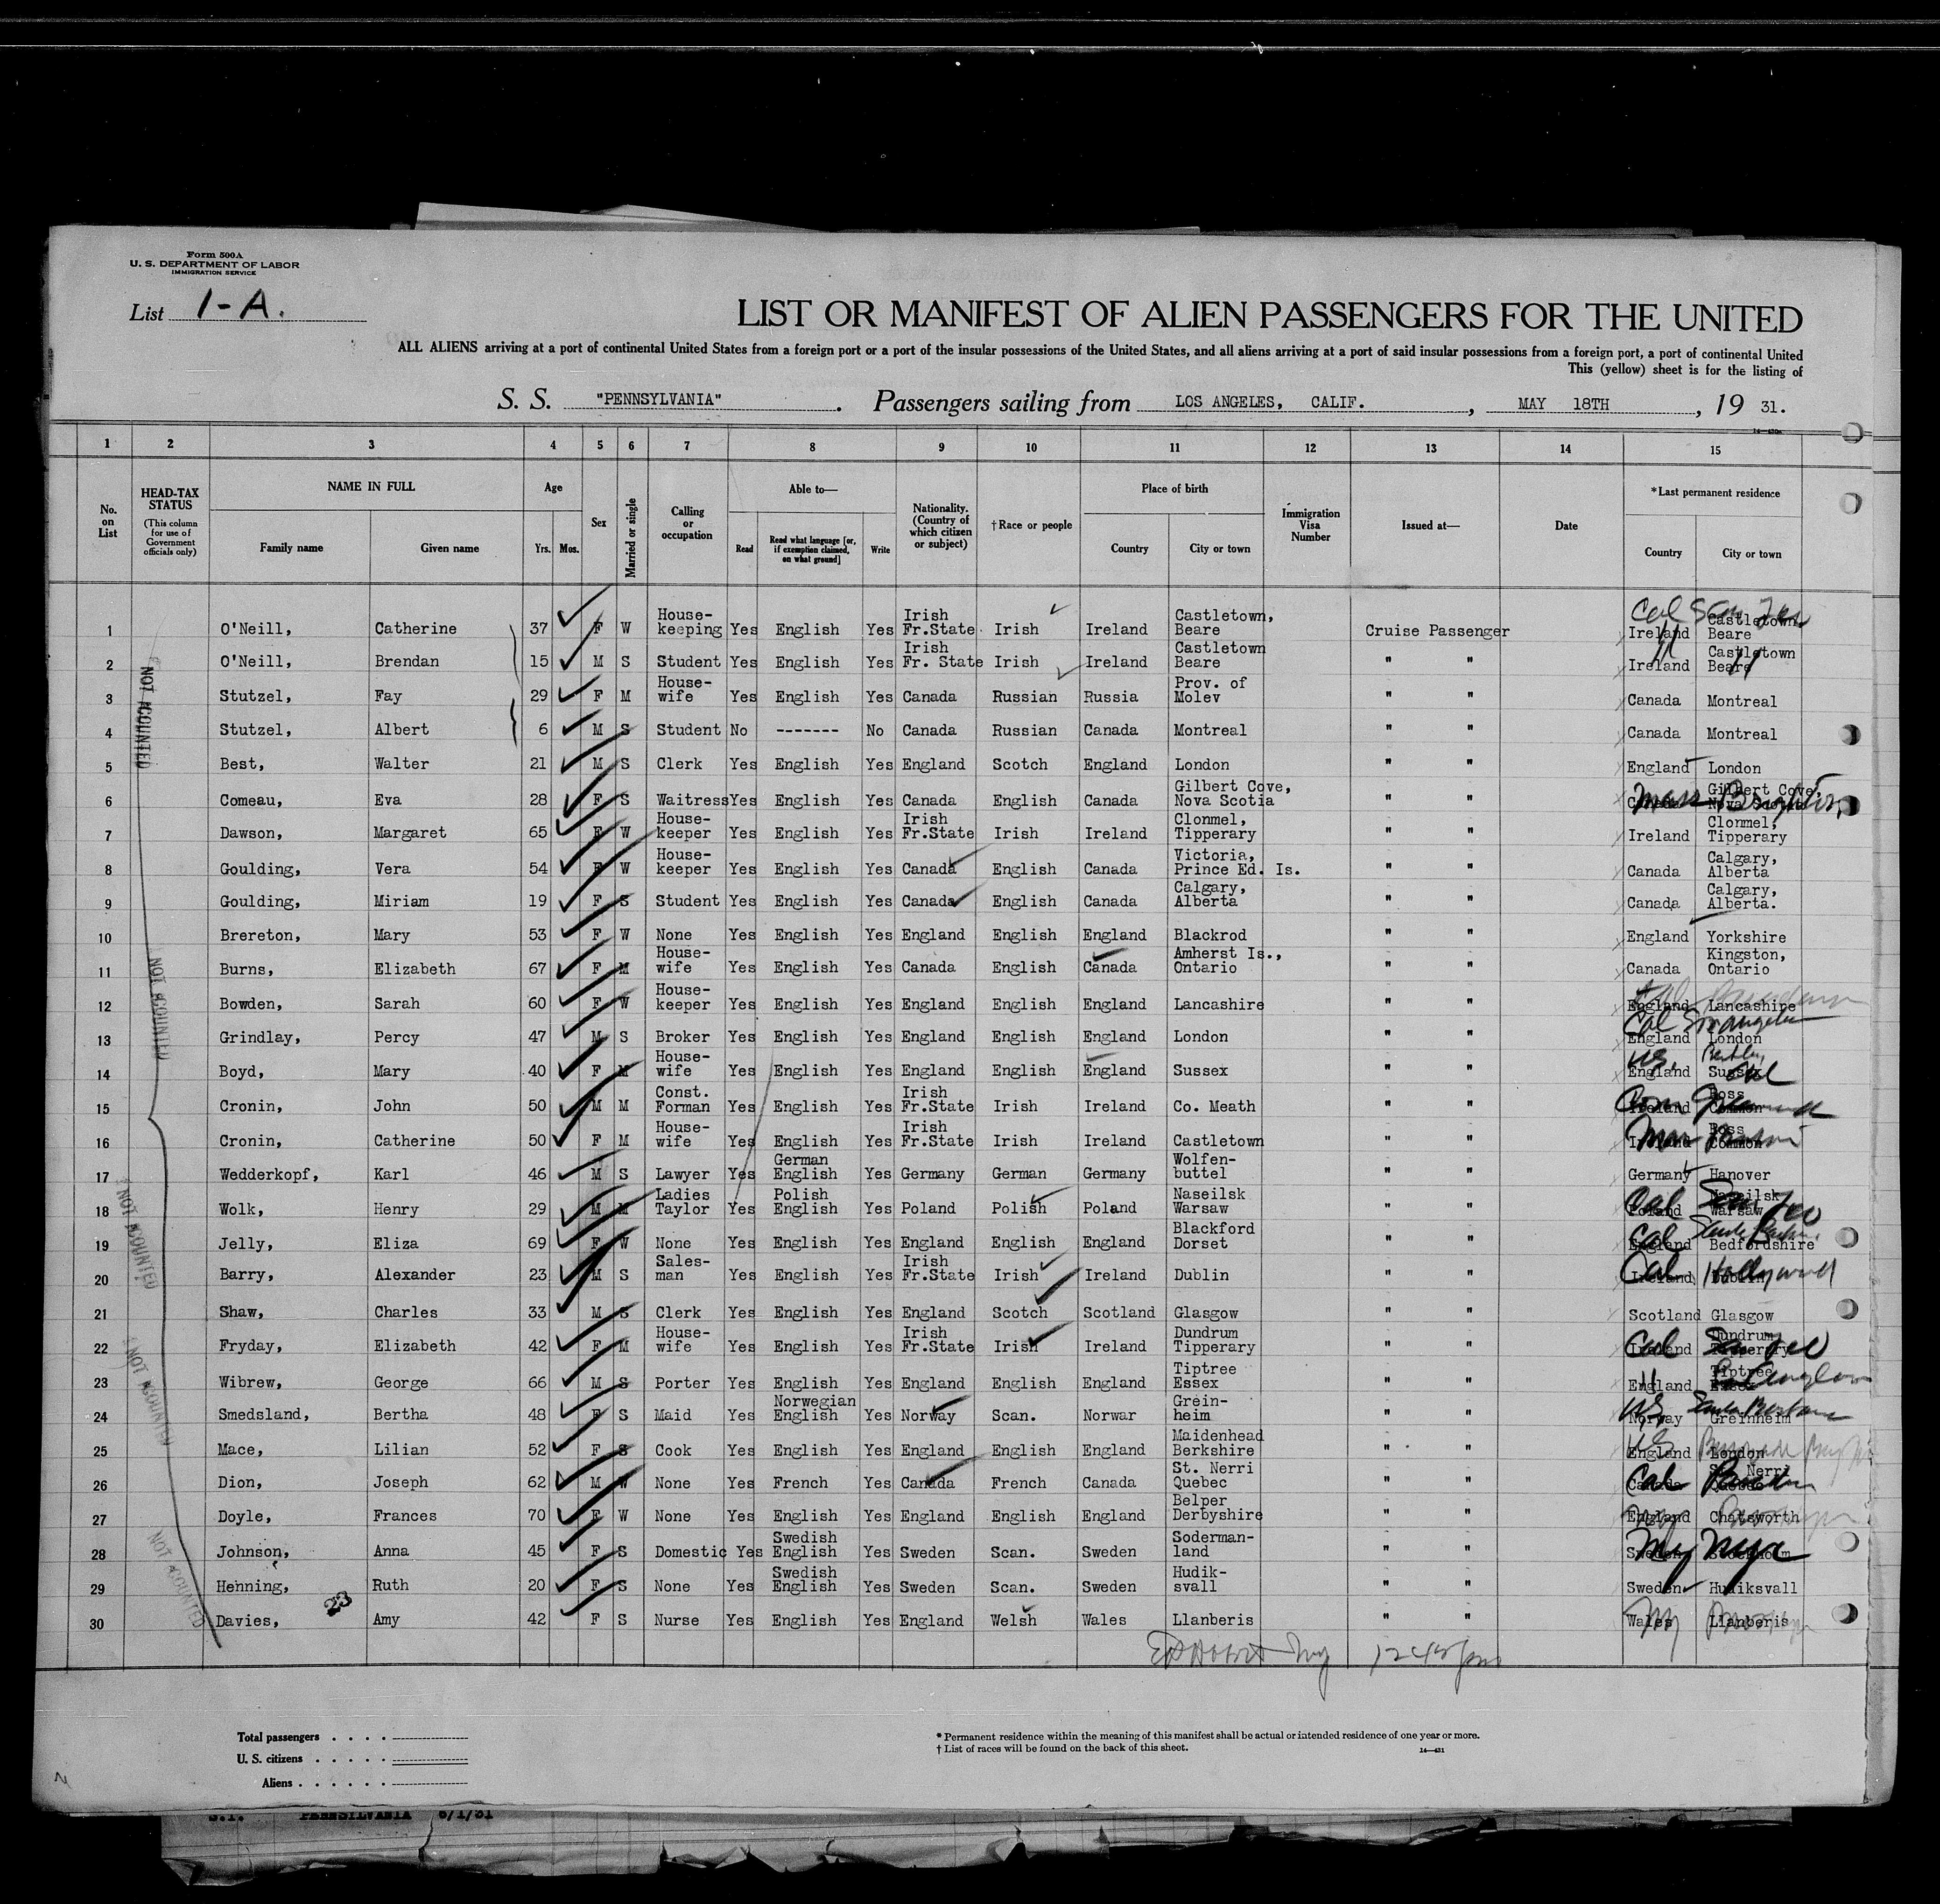 Form 500A
U. S. DEPARTMENT OF LABOR
IMMIGRATION SERVICE
List 1-A.
LIST OR MANIFEST OF ALIEN PASSENGERS FOR THE UNITED
ALL ALIENS arriving at a port of continental United States from a foreign port or a port of the insular possessions of the United States, and all aliens arriving at a port of said insular possessions from a foreign port, a port of continental United
This (yellow) sheet is for the listing of
S. S. "PENNSYLVANIA". Passengers sailing from LOS ANGELES, CALIF., MAY 18TH, 19 31.
1 2 3 4 5 6 7 8 9 10 11 12 13 14 15
No. on List
HEAD-TAX STATUS
(This column for use of Government officials only)
NAME IN FULL
Family name Given name
Age
Yrs. Mos.
Sex
Married or single
Calling or occupation
Able to—
Read
Read what language [or, if exemption claimed, on what ground]
Write
Nationality. (Country of which citizen or subject)
†Race or people
Place of birth
Country City or town
Immigration Visa Number
Issued at—
Date
*Last permanent residence
Country City or town
1 O'Neill, Catherine 37 F W House-keeping Yes English Yes Irish Fr.State Irish Ireland Castletown, Beare Cruise Passenger Ireland Castletown, Beare
2 O'Neill, Brendan 15 M S Student Yes English Yes Irish Fr. State Irish Ireland Castletown Beare " " Ireland Castletown Beare
3 Stutzel, Fay 29 F M House-wife Yes English Yes Canada Russian Russia Prov. of Molev " " Canada Montreal
4 Stutzel, Albert 6 M S Student No ------- No Canada Russian Canada Montreal " " Canada Montreal
5 Best, Walter 21 M S Clerk Yes English Yes England Scotch England London " " England London
6 Comeau, Eva 28 F S Waitress Yes English Yes Canada English Canada Gilbert Cove, Nova Scotia " " Canada Gilbert Cove, Nova Scotia Mass Brighton
7 Dawson, Margaret 65 F W House-keeper Yes English Yes Irish Fr.State Irish Ireland Clonmel, Tipperary " " Ireland Clonmel, Tipperary
8 Goulding, Vera 54 F W House-keeper Yes English Yes Canada English Canada Victoria, Prince Ed. Is. " " Canada Calgary, Alberta
9 Goulding, Miriam 19 F S Student Yes English Yes Canada English Canada Calgary, Alberta " " Canada Calgary, Alberta.
10 Brereton, Mary 53 F W None Yes English Yes England English England Blackrod " " England Yorkshire
11 Burns, Elizabeth 67 F M House-wife Yes English Yes Canada English Canada Amherst Is., Ontario " " Canada Kingston, Ontario
12 Bowden, Sarah 60 F W House-keeper Yes English Yes England English England Lancashire " " England Lancashire
13 Grindlay, Percy 47 M S Broker Yes English Yes England English England London " " England London Cal
14 Boyd, Mary 40 F M House-wife Yes English Yes England English England Sussex " " England Sussex US, Cal
15 Cronin, John 50 M M Const. Forman Yes English Yes Irish Fr.State Irish Ireland Co. Meath " " Ireland Ross Common
16 Cronin, Catherine 50 F M House-wife Yes English Yes Irish Fr.State Irish Ireland Castletown " " Ireland Ross Common
17 Wedderkopf, Karl 46 M S Lawyer Yes German English Yes Germany German Germany Wolfen-buttel " " Germany Hanover
18 Wolk, Henry 29 M M Ladies Taylor Yes Polish English Yes Poland Polish Poland Naseilsk Warsaw " " Poland Naseilsk Warsaw Cal
19 Jelly, Eliza 69 F W None Yes English Yes England English England Blackford Dorset " " England Bedfordshire Cal
20 Barry, Alexander 23 M S Sales-man Yes English Yes Irish Fr.State Irish Ireland Dublin " " Ireland Dublin Cal Hollywood
21 Shaw, Charles 33 M S Clerk Yes English Yes England Scotch Scotland Glasgow " " Scotland Glasgow
22 Fryday, Elizabeth 42 F M House-wife Yes English Yes Irish Fr.State Irish Ireland Dundrum Tipperary " " Ireland Dundrum Tipperary Cal
23 Wibrew, George 66 M S Porter Yes English Yes England English England Tiptree Essex " " England Tiptree Essex
24 Smedsland, Bertha 48 F S Maid Yes Norwegian English Yes Norway Scan. Norwar Grein-heim " " Norway Greinheim US
25 Mace, Lilian 52 F S Cook Yes English Yes England English England Maidenhead Berkshire " " England London US
26 Dion, Joseph 62 M W None Yes French Yes Canada French Canada St. Nerri Quebec " " Canada St. Nerri Quebec Cal
27 Doyle, Frances 70 F W None Yes English Yes England English England Belper Derbyshire " " England Chatsworth
28 Johnson, Anna 45 F S Domestic Yes Swedish English Yes Sweden Scan. Sweden Soderman-land " " Sweden Stockholm
29 Henning, Ruth 20 F S None Yes Swedish English Yes Sweden Scan. Sweden Hudik-svall " " Sweden Hudiksvall
30 Davies, Amy 42 F S Nurse Yes English Yes England Welsh Wales Llanberis " " Wales Llanberis
23
NOT ACCOUNTED
NOT ACCOUNTED
NOT ACCOUNTED
NOT ACCOUNTED
NOT ACCOUNTED
Total passengers
U. S. citizens
Aliens
* Permanent residence within the meaning of this manifest shall be actual or intended residence of one year or more.
† List of races will be found on the back of this sheet.
14—431
PENNSYLVANIA 6/1/31